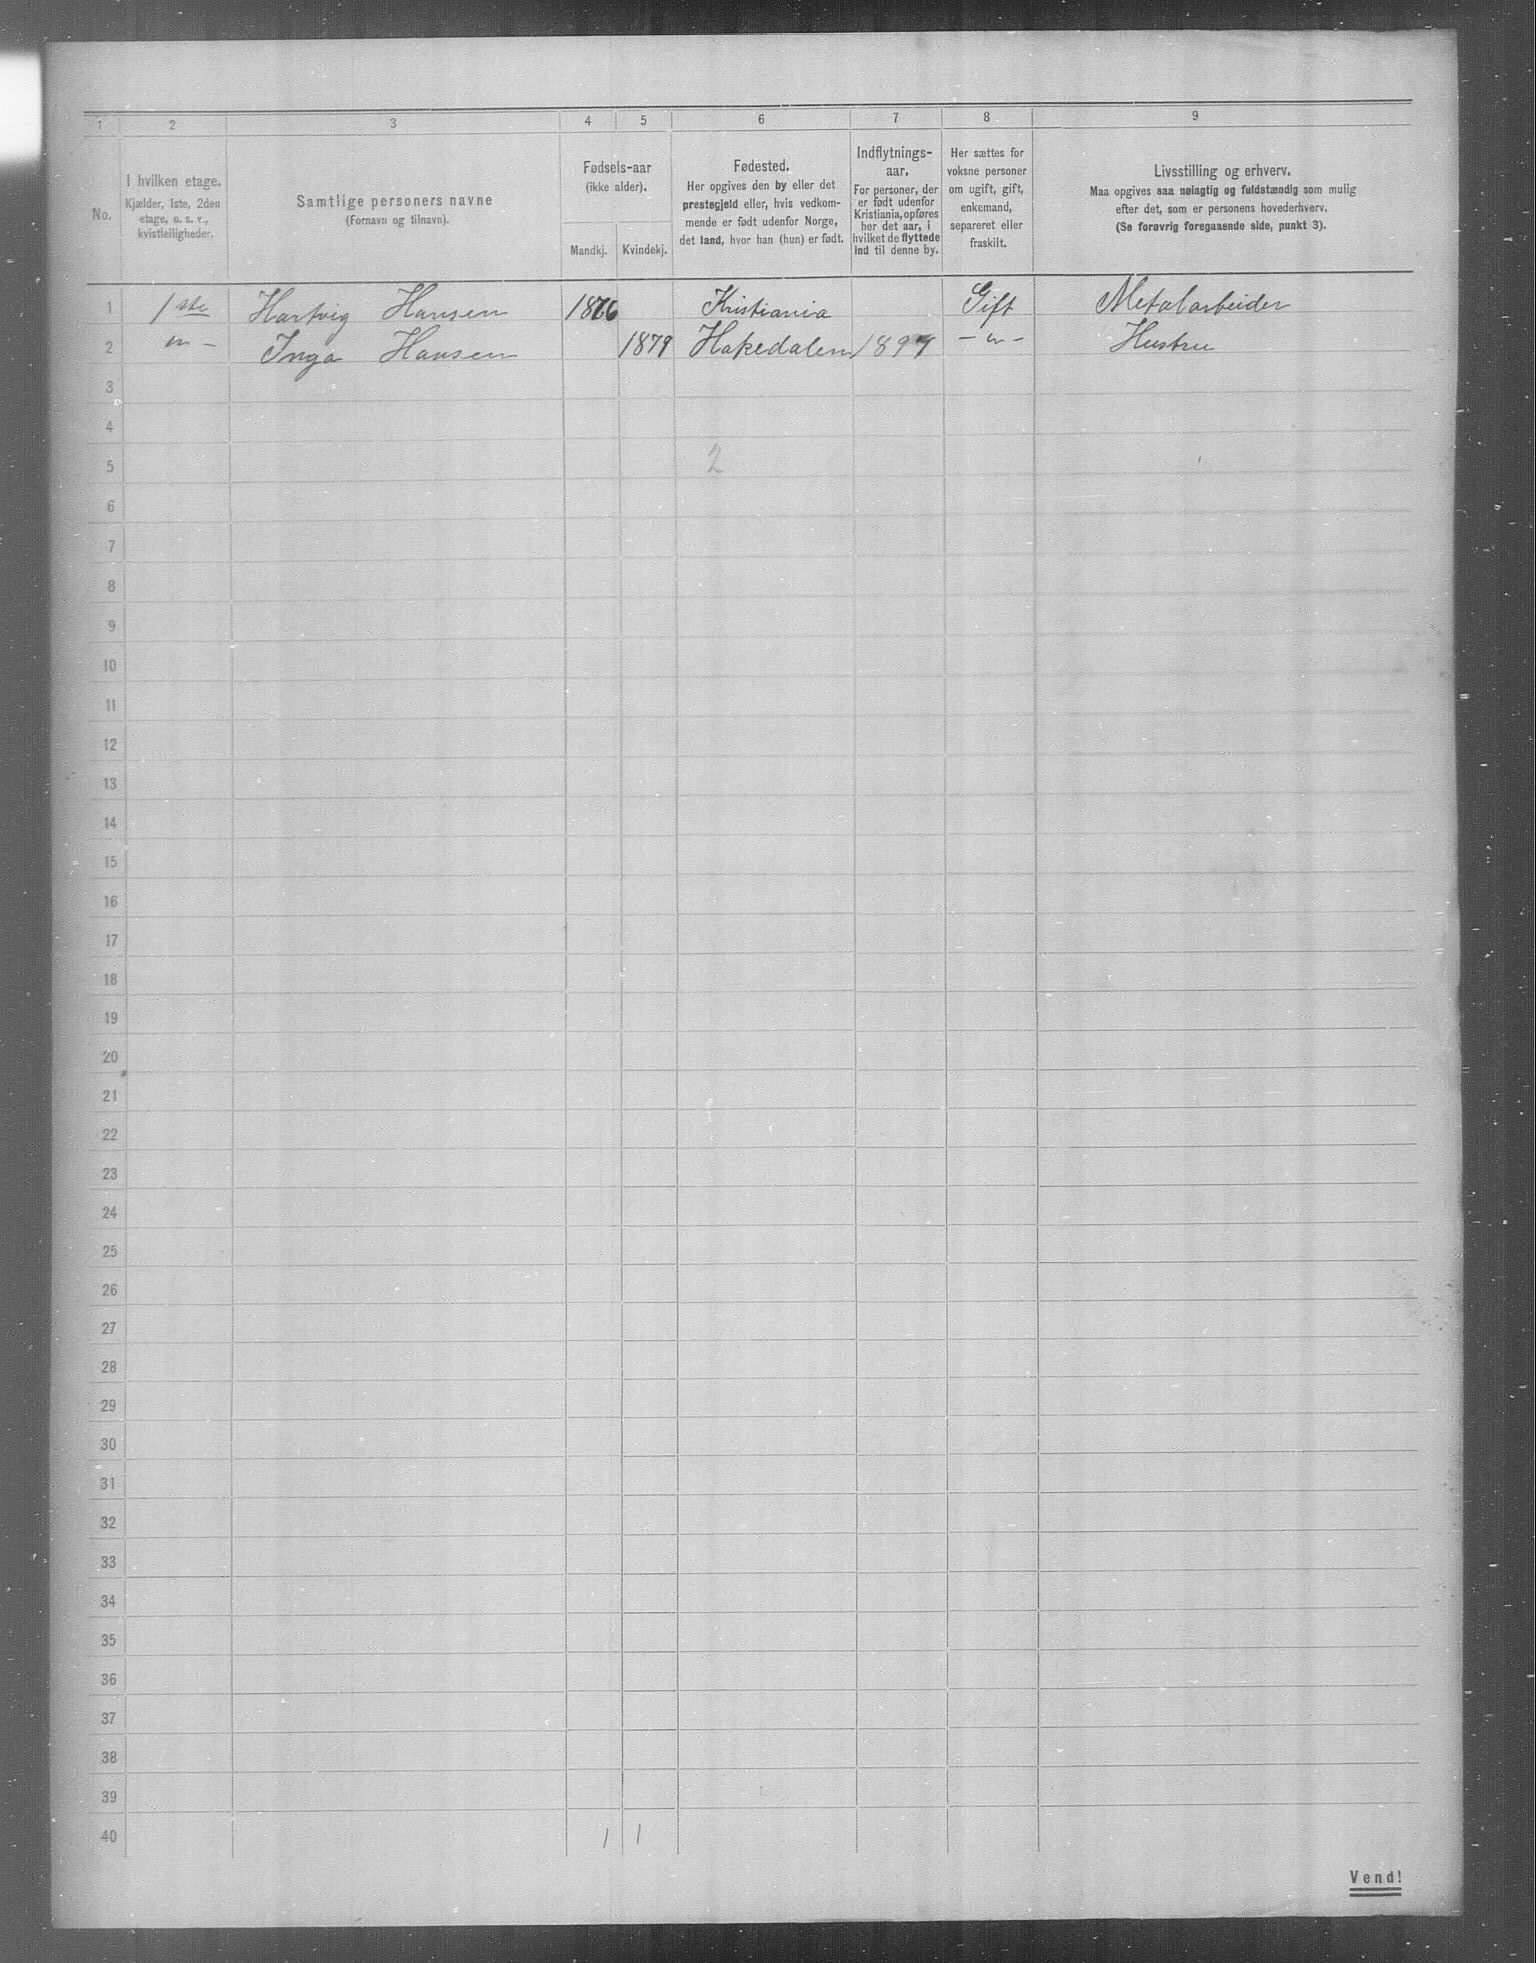 1 2 3 4 5 6 7 8 9
No.
I hvilken etage.
Kjælder, 1ste, 2den
etage, o. s. v.,
kvistleiligheder.
Samtlige personers navne
(Fornavn og tilnavn).
Fødsels-aar
(ikke alder).
Mandkj. Kvindekj.
Fødested.
Her opgives den by eller det
prestegjeld eller, hvis vedkom-
mende er født udenfor Norge,
det land, hvor han (hun) er født.
Indflytnings-
aar.
For personer, der
er født udenfor
Kristiania, opføres
her det aar, i
hvilket de flyttede
ind til denne by.
Her sættes for
voksne personer
om ugift, gift,
enkemand,
separeret eller
fraskilt.
Livsstilling og erhverv.
Maa opgives saa nøiagtig og fuldstændig som mulig
efter det, som er personens hovederhverv.
(Se forøvrig foregaaende side, punkt 3).
1 1ste Hartvig Hansen 1876 Kristiania Gift Metalarbeider
2 -"- Inga Hansen 1879 Hakedalen 1897 -"- Hustru
3
4
5 2
6
7
8
9
10
11
12
13
14
15
16
17
18
19
20
21
22
23
24
25
26
27
28
29
30
31
32
33
34
35
36
37
38
39
40 1 1
Vend!